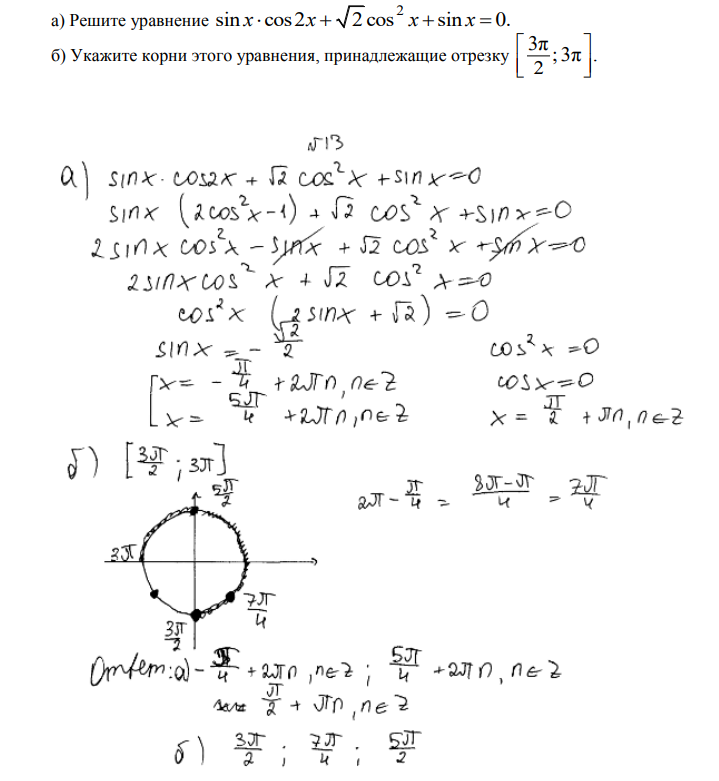 а) Решите уравнение sin x · cos 2x + √2 cos² x + sin x = 0.
б) Укажите корни этого уравнения, принадлежащие отрезку [3π/2; 3π].
№13
а) sinx · cos2x + √2 cos²x + sinx = 0
sinx (2cos²x - 1) + √2 cos²x + sinx = 0
2sinx cos²x - sinx + √2 cos²x + sinx = 0
2sinx cos²x + √2 cos²x = 0
cos²x (2sinx + √2) = 0
sinx = - √2/2 cos²x = 0
x = - π/4 + 2πn, n∈Z cosx = 0
x = 5π/4 + 2πn, n∈Z x = π/2 + πn, n∈Z
б) [3π/2; 3π]
5π/2 2π - π/4 = (8π - π)/4 = 7π/4
3π
7π/4
3π/2
Ответ: а) - π/4 + 2πn, n∈Z; 5π/4 + 2πn, n∈Z
π/2 + πn, n∈Z
б) 3π/2; 7π/4; 5π/2